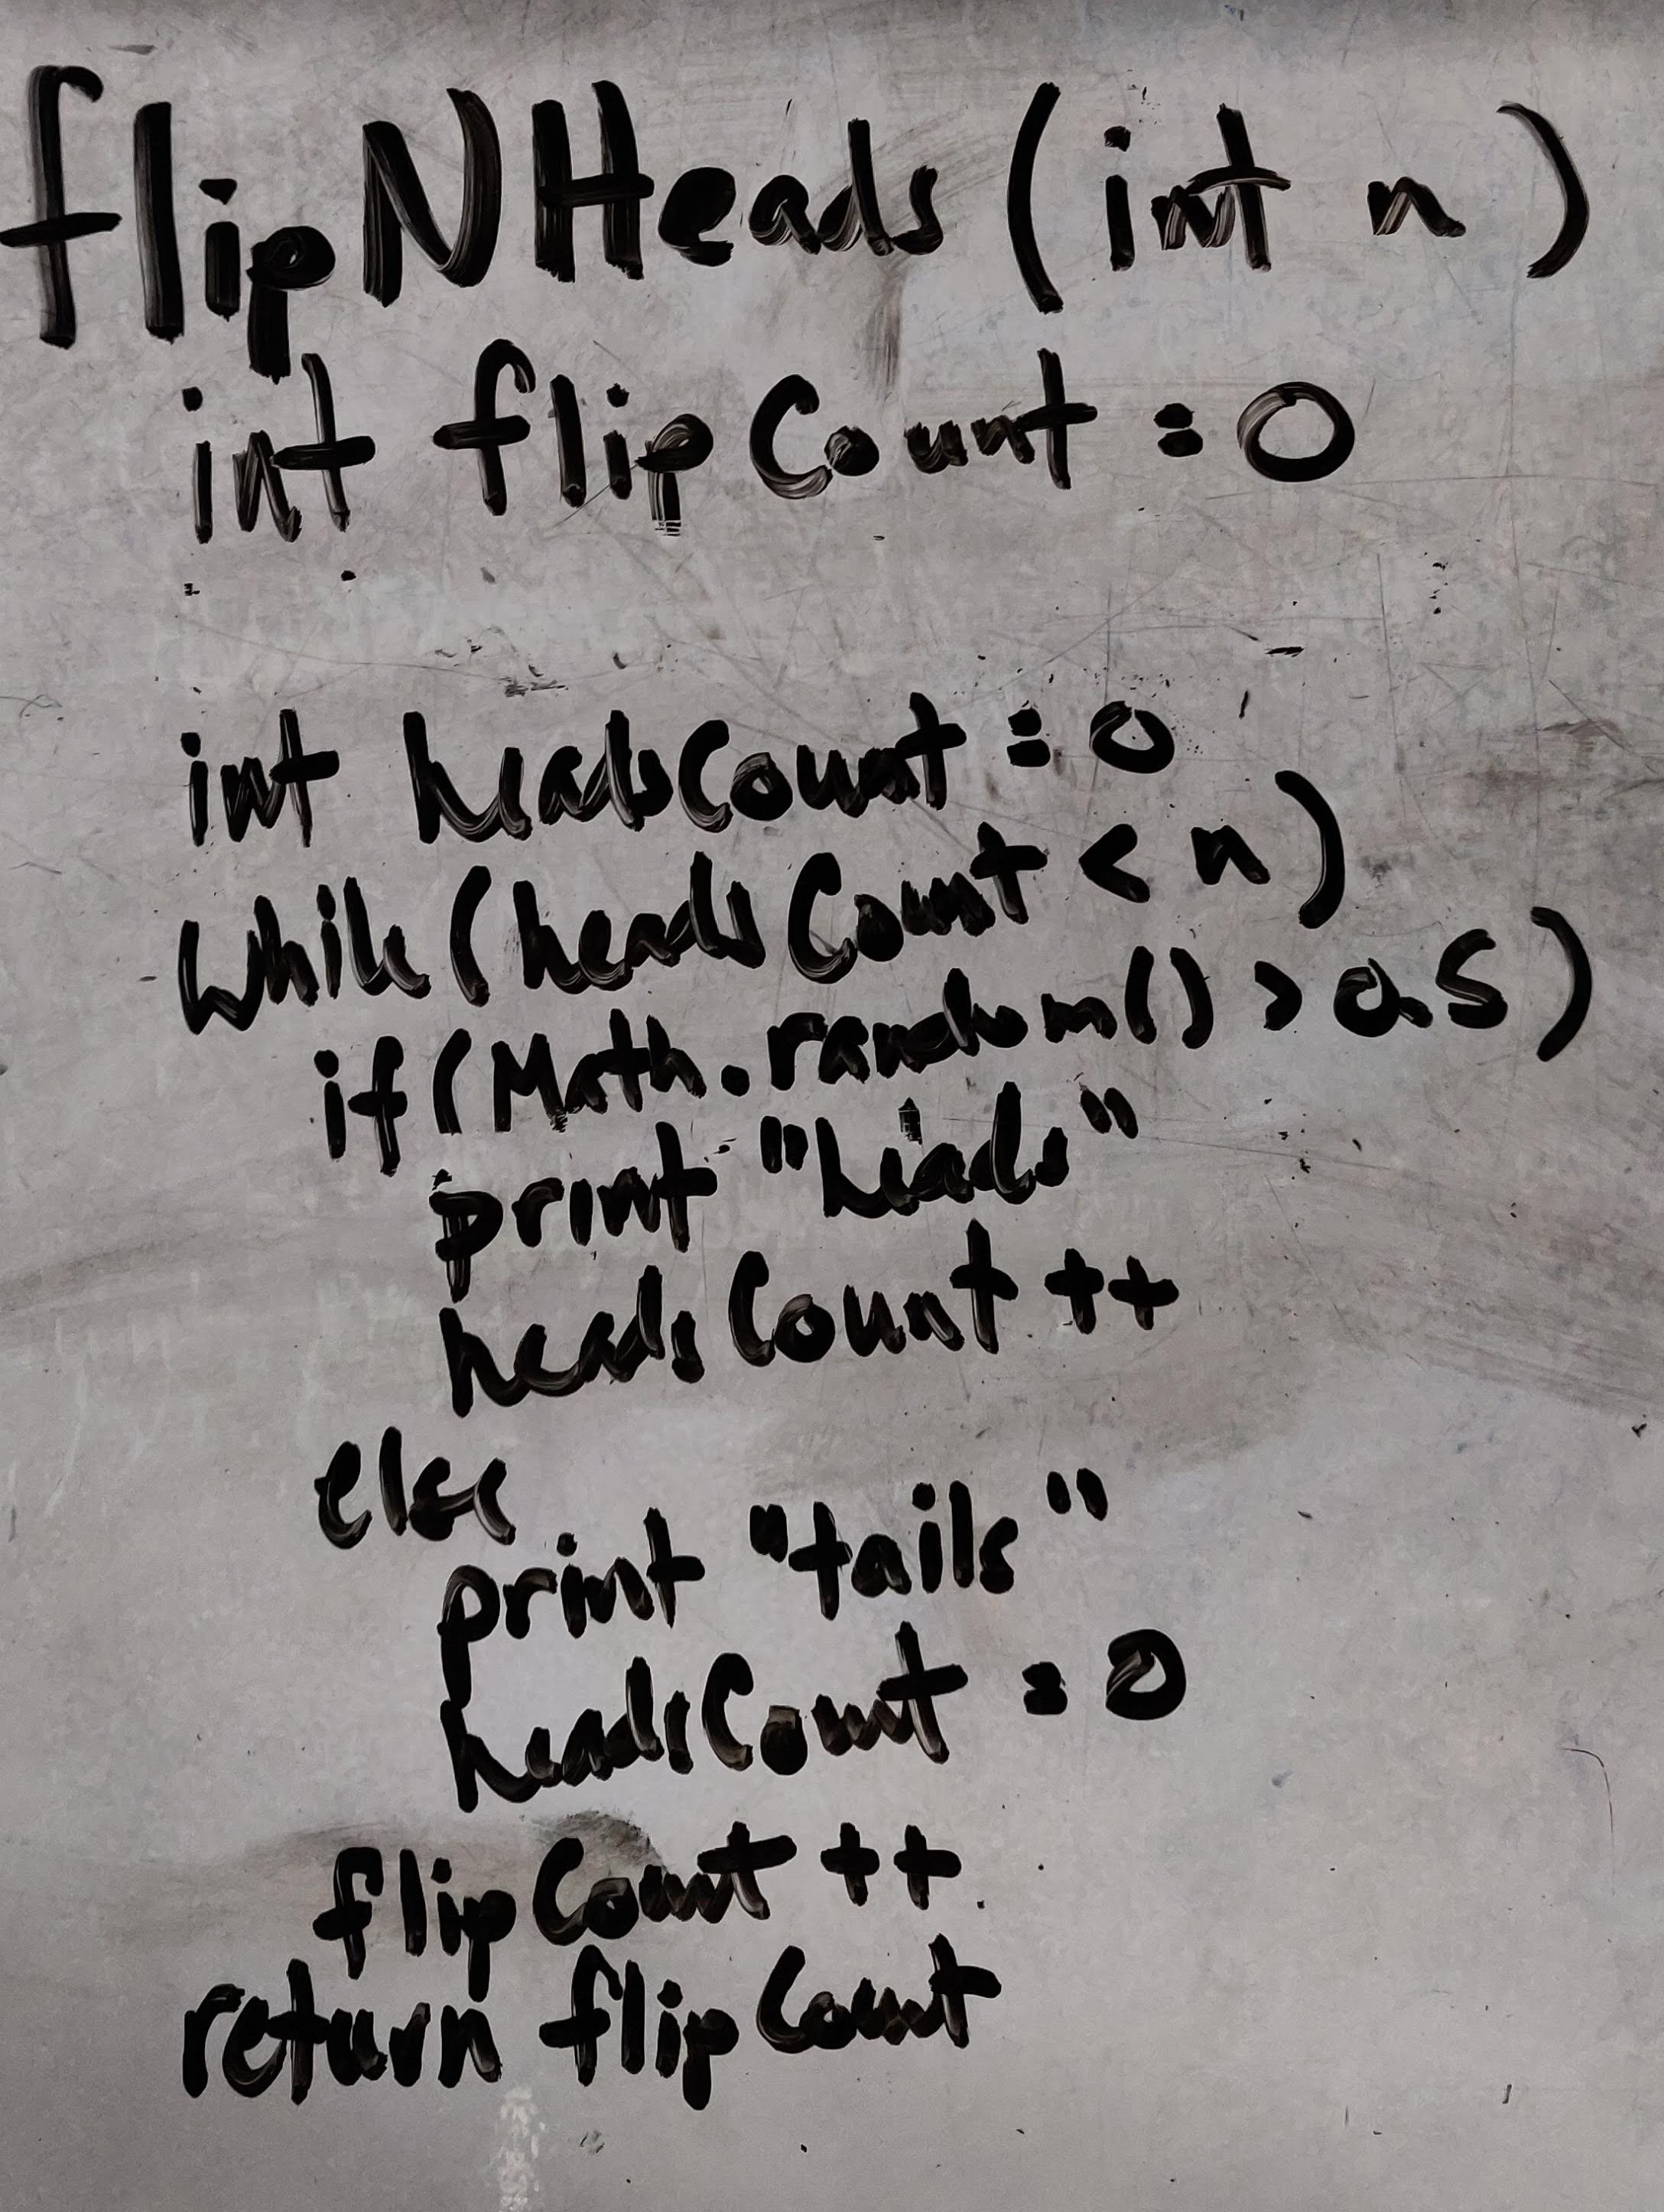 flipNHeads(int n)
int flipCount = 0
int headsCount = 0
while (headsCount < n)
if (Math.random() > 0.5)
print "heads"
headsCount ++
else
print "tails"
headsCount = 0
flipCount ++
return flipCount